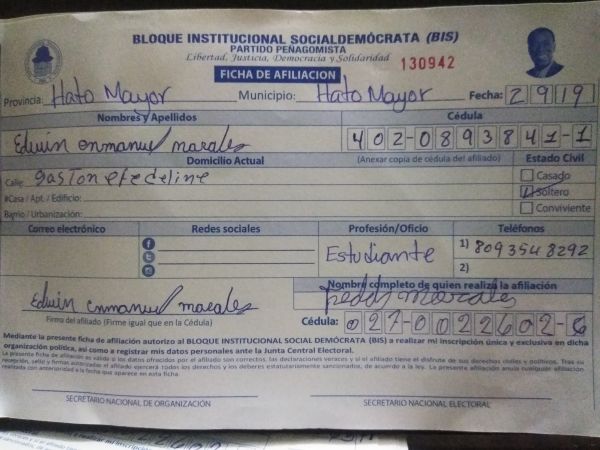 BLOQUE INSTITUCIONAL SOCIALDEMÓCRATA (BIS)
PARTIDO PEÑAGOMISTA
Libertad, Justicia, Democracia y Solidaridad
130942
FICHA DE AFILIACION
Provincia: Hato Mayor Municipio: Hato Mayor Fecha: 2 9 19
Nombres y Apellidos Cédula
Edwin enmanuel morales 402-0893841-1
Domicilio Actual (Anexar copia de cédula del afiliado) Estado Civil
Calle: gaston efedeline Casado
#Casa / Apt. / Edificio: Soltero
Barrio / Urbanización: Conviviente
Correo electrónico Redes sociales Profesión/Oficio Teléfonos
Estudiante 1) 809 354 8292
2)
Nombre completo de quien realiza la afiliación
Edwin enmanuel morales Freddy morales
Firma del afiliado (Firme igual que en la Cédula) Cédula: 027-0022602-6
Mediante la presente ficha de afiliación autorizo al BLOQUE INSTITUCIONAL SOCIAL DEMÓCRATA (BIS) a realizar mi inscripción única y exclusiva en dicha
organización política, así como a registrar mis datos personales ante la Junta Central Electoral.
La presente ficha de afiliación es válida si los datos ofrecidos por el afiliado son correctos, las declaraciones veraces y si el afiliado tiene el disfrute de sus derechos civiles y políticos. Tras su
recepción, sello y firmas autorizadas el afiliado ejercerá todos los derechos y los deberes estatutariamente sancionados, de acuerdo a la ley. La presente afiliación anula cualquier afiliación
realizada con anterioridad a la fecha que aparece en esta ficha.
SECRETARIO NACIONAL DE ORGANIZACIÓN SECRETARIO NACIONAL ELECTORAL